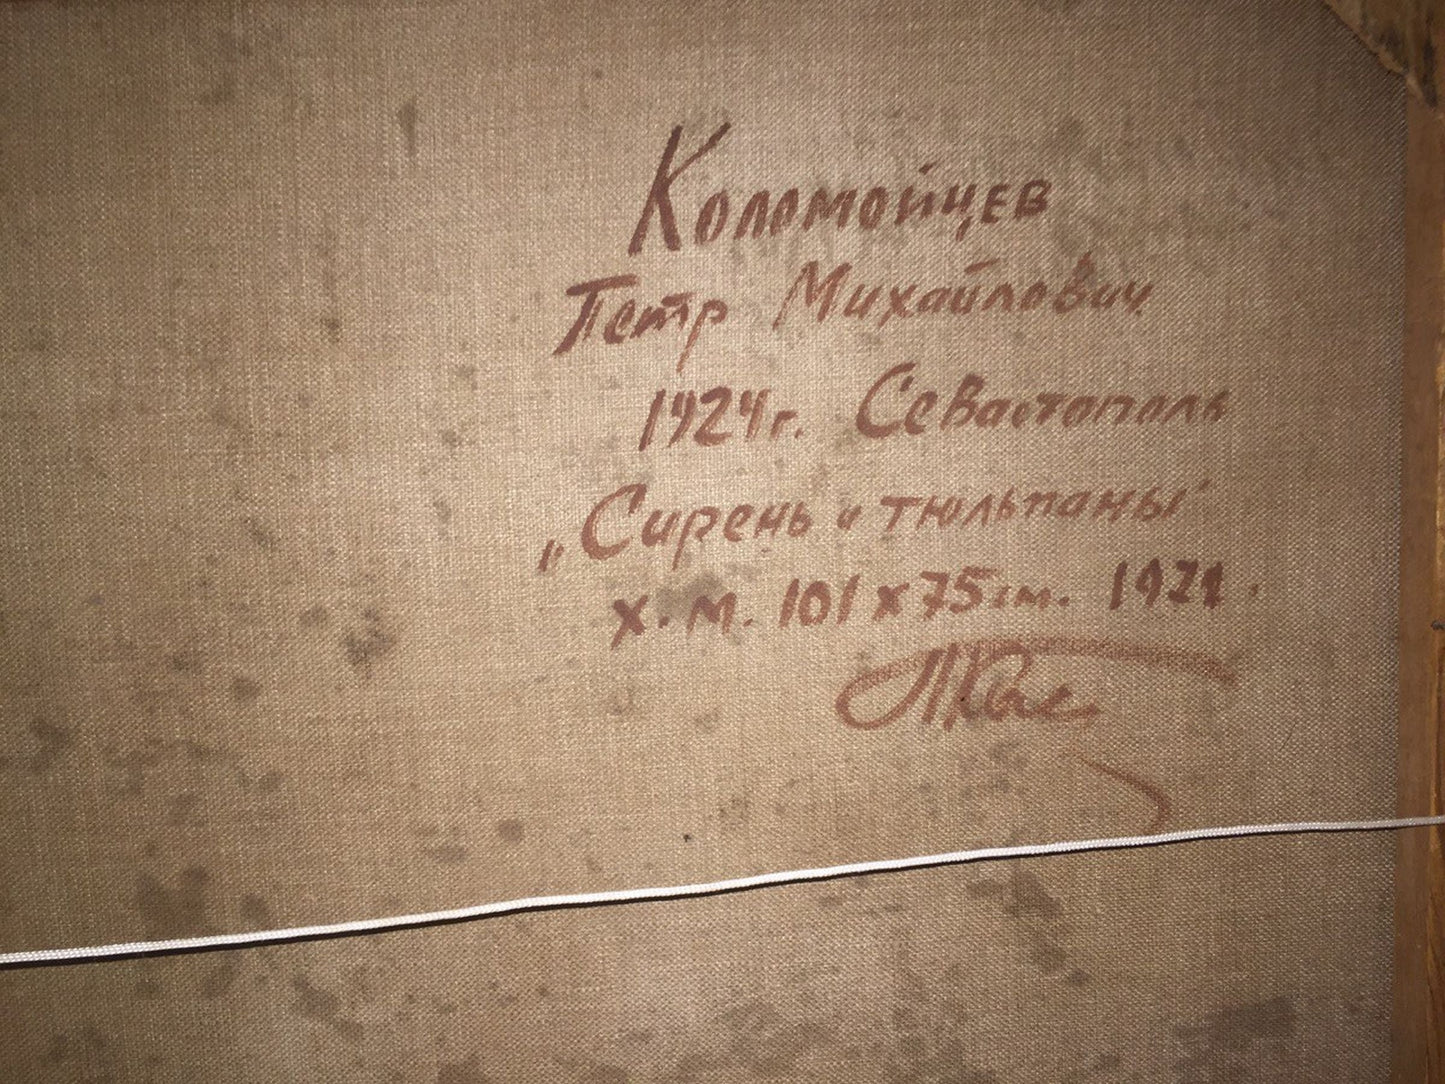 Коломойцев
Петр Михайлович
1924г. Севастополь
„Сирень и тюльпаны"
х.м. 101х75см.